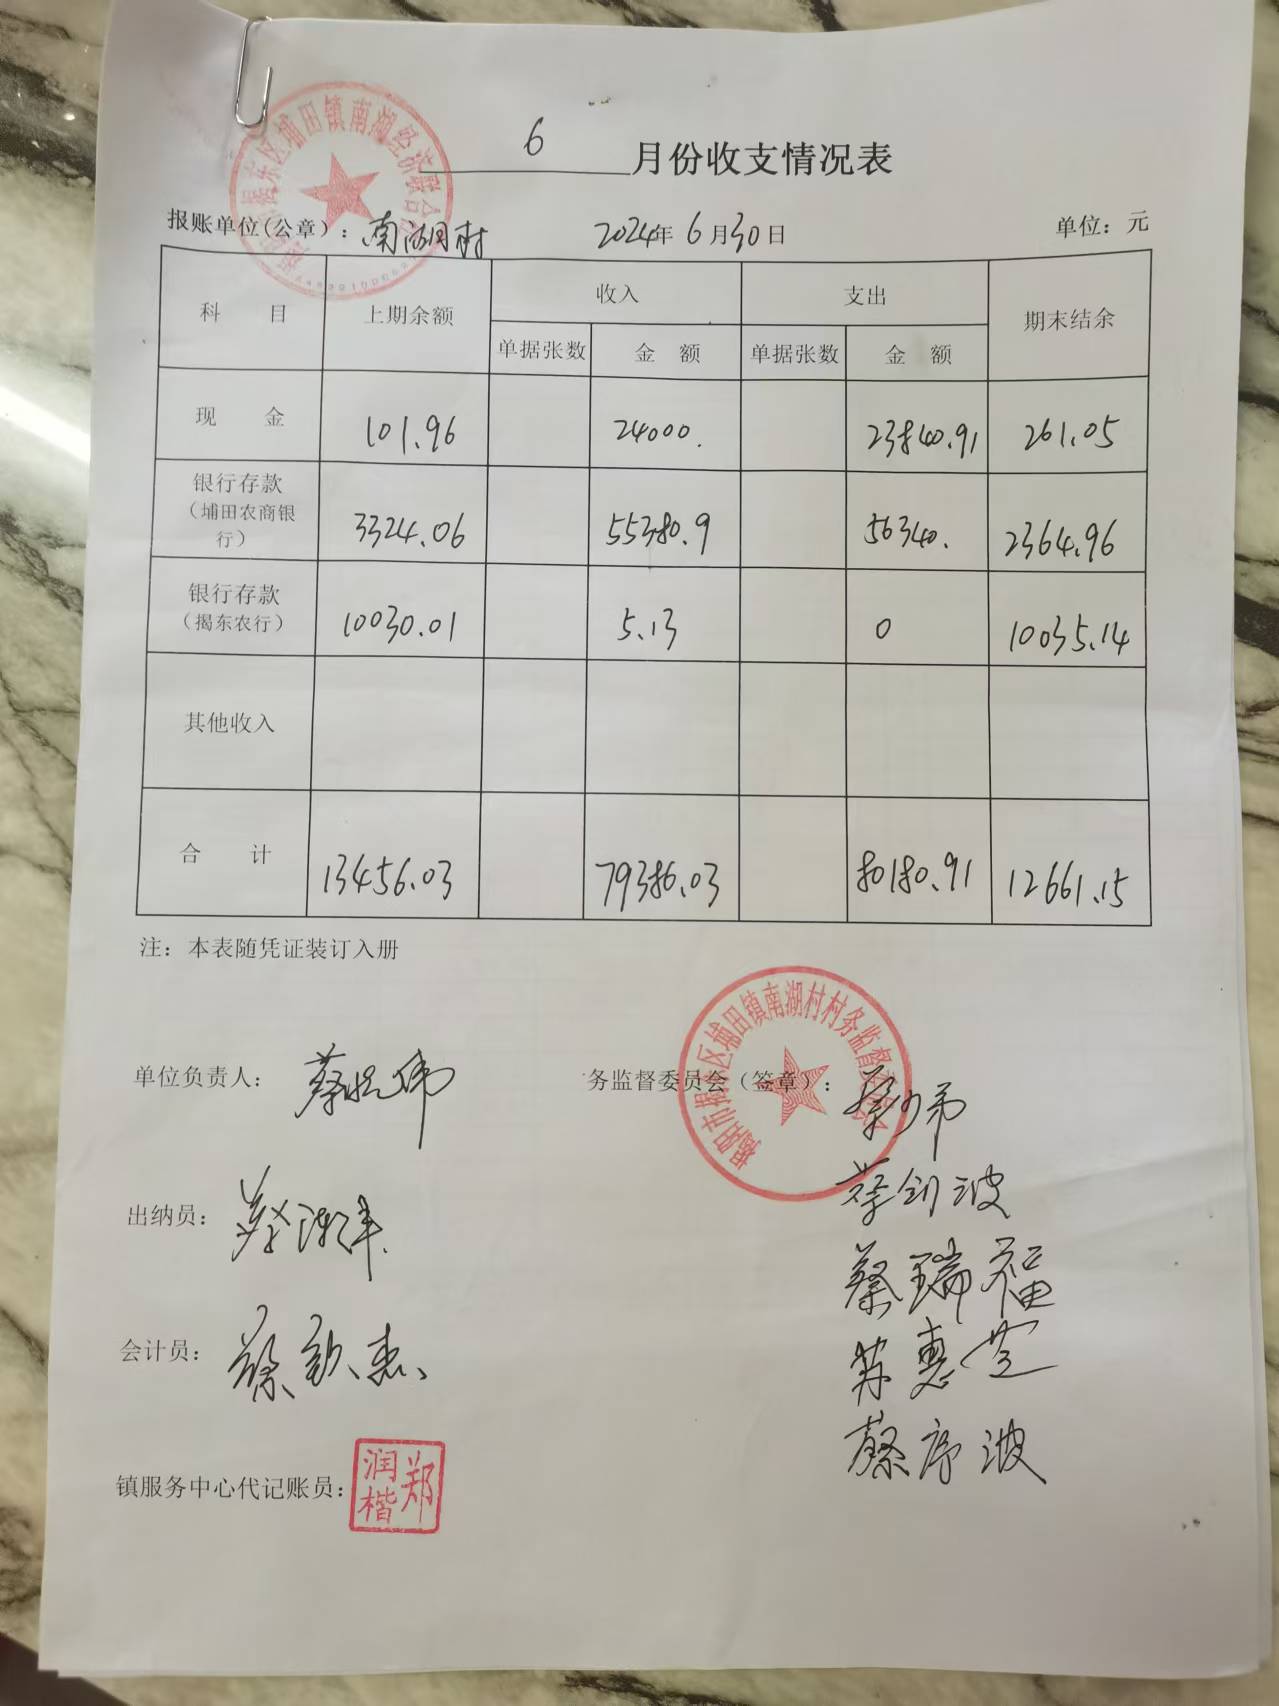 6 月份收支情况表
报账单位(公章)：南湖村 2024年6月30日 单位：元
科 目 上期余额 收入 支出 期末结余
单据张数 金 额 单据张数 金 额
现 金 101.96 24000. 23840.91 261.05
银行存款（埔田农商银行） 3324.06 55380.9 56340. 2364.96
银行存款（揭东农行） 10030.01 5.13 0 10035.14
其他收入
合 计 13456.03 79386.03 80180.91 12661.15
注：本表随凭证装订入册
单位负责人： 务监督委员会（签章）：
揭阳市揭东区埔田镇南湖村村务监督委员会
出纳员：
蔡瑞福
会计员：
苏惠芝
蔡序波
镇服务中心代记账员：郑润楷